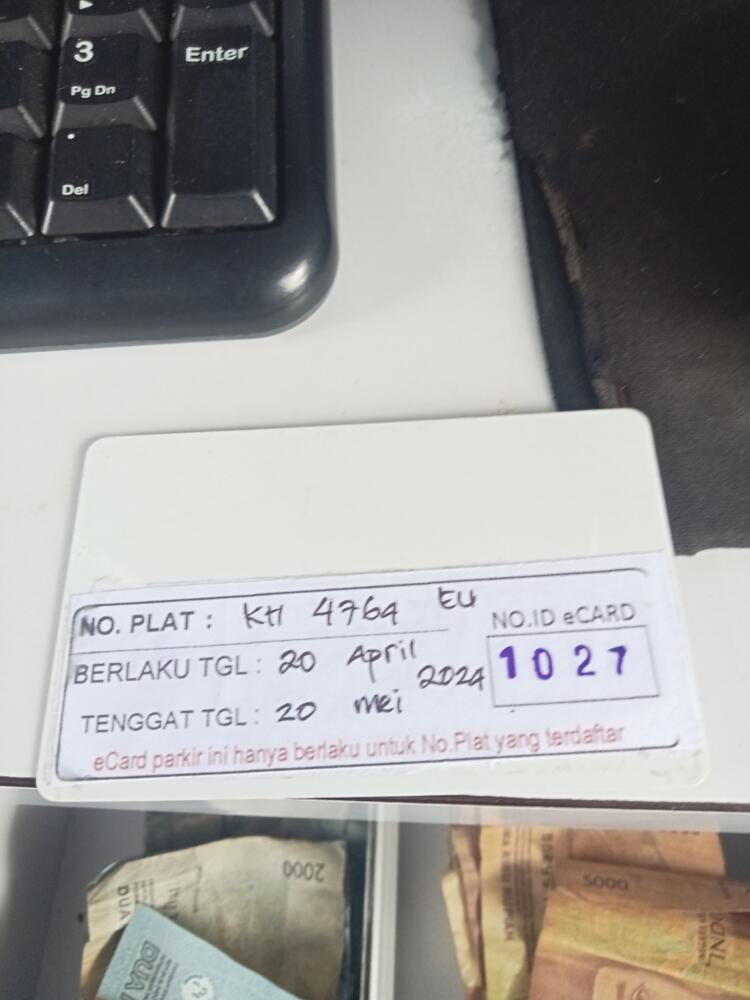 3
Pg Dn
Enter
.
Del
NO. PLAT : KH 4764 EU
NO.ID eCARD
1027
BERLAKU TGL : 20 April 2024
TENGGAT TGL : 20 mei
eCard parkir ini hanya berlaku untuk No.Plat yang terdaftar
2000
DUA
DUA
5000